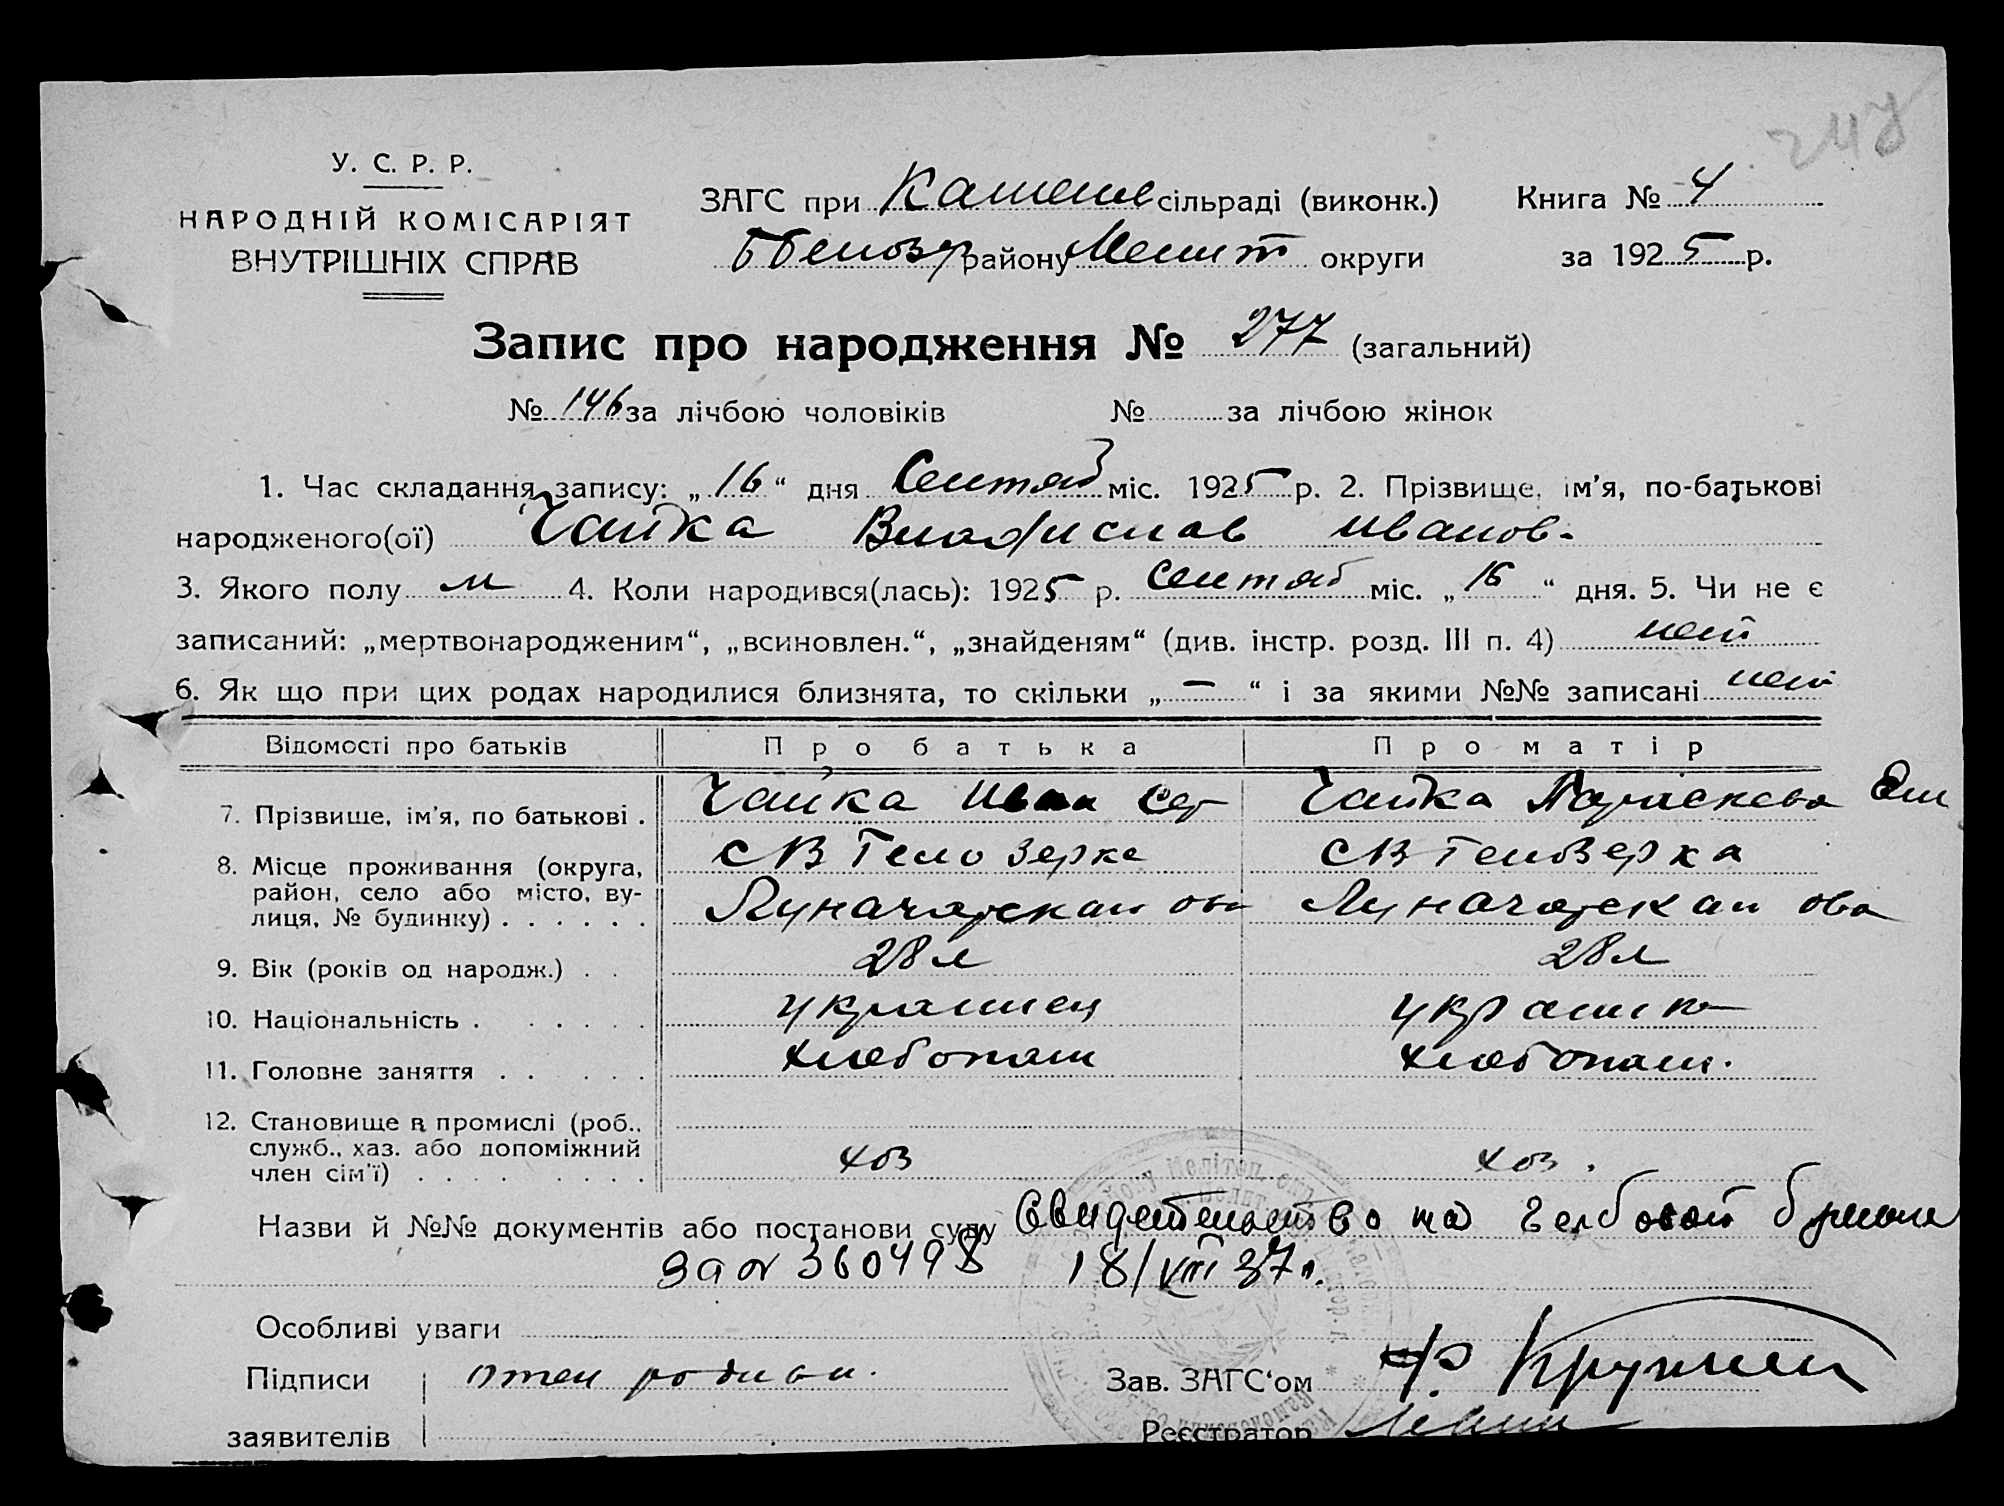 247
У. С. Р. Р.
НАРОДНІЙ КОМІСАРІЯТ
ВНУТРІШНІХ СПРАВ
ЗАГС при Каменс сільраді (виконк.) Книга № 4
району Мелит округи за 1925 р.
Запис про народження № 277 (загальний)
№ 146 за лічбою чоловіків № за лічбою жінок
1. Час складання запису: „16“ дня Сентяб міс. 1925 р. 2. Прізвище, ім’я, по-батькові
народженого(ої) Чайка Владислав Иванов.
3. Якого полу м 4. Коли народився(лась): 1925 р. Сентяб міс. „16“ дня. 5. Чи не є
записаний: „мертвонародженим“, „всиновлен.“, „знайденям“ (див. інстр. розд. III п. 4) нет
6. Як що при цих родах народилися близнята, то скільки „—“ і за якими №№ записані нет
Відомості про батьків Про батька Про матір
7. Прізвище, ім’я, по батькові . Чайка Иван Чайка Параскева
8. Місце проживання (округа,
район, село або місто, ву-
лиця, № будинку) . . . . . . Луначарская Луначарская
9. Вік (років од народж.) . . 28 л 28 л
10. Національність . . . . . . украинец украинка
11. Головне заняття . . . . . хлебопаш хлебопаш.
12. Становище в промислі (роб.,
служб., хаз. або допоміжний
член сім’ї) . . . . . . . . хоз хоз.
Назви й №№ документів або постанови суду Свидетельство на гербовой бумаге
за № 360498 18/VIII 37 г.
Особливі уваги
Підписи Отец
заявителів
Зав. ЗАГС‘ом
Реєстратор